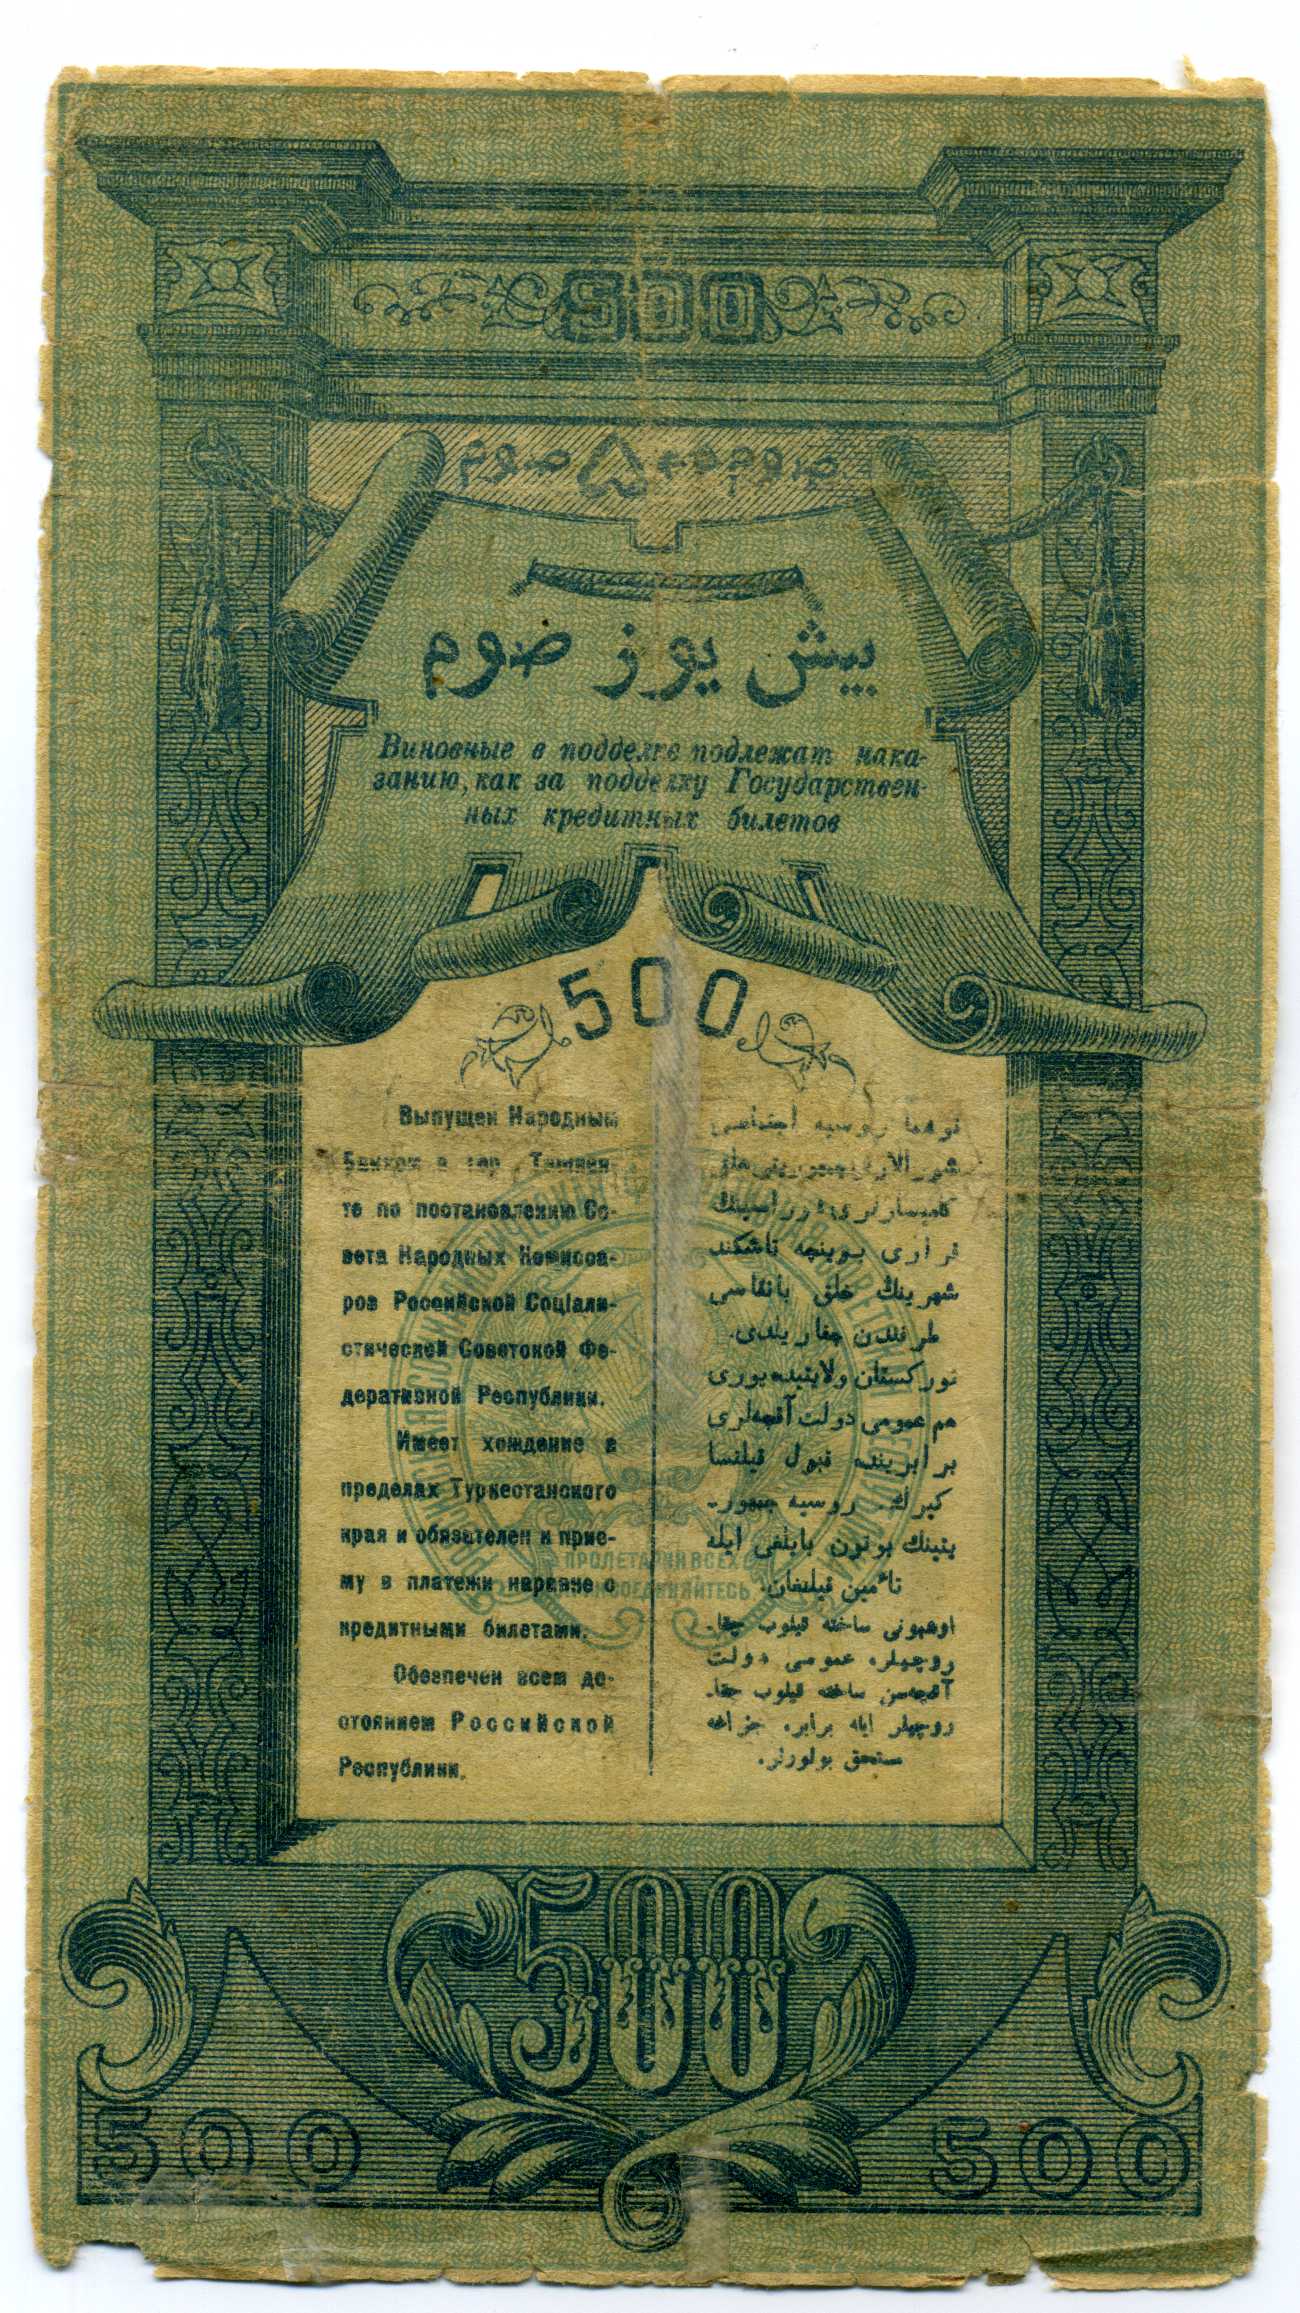 500
بيش يوز صوم
Виновные в подделке подлежат нака-
занию, как за подделку Государствен-
ных кредитных билетов
500
Выпущен Народным
Банком в гор. Ташкен-
те по постановлению Со-
вета Народных Комисса-
ров Российской Соціали-
стической Советской Фе-
деративной Республики.
Имеет хождение в
пределах Туркестанского
края и обязателен к прие-
му в платежи наравне с
кредитными билетами.
Обезпечен всем до-
стоянием Российской
Республики.
روسيه
قراری بوينچه تاشكند
شهرينك خلق بانقاسی
طرفندن چقاريلدی.
توركستان ولايتيده يوری
هم عمومی دولت آقچه‌لری
برابرينده قبول قيلنسا
كيرك. روسيه جمهور-
يتينك بوتون بايلغی ايله
تأمين قيلنغان.
اوشبونی ساخته قيلوب چقا-
روچيلر، عمومی دولت
آقچه‌سن ساخته قيلوب چقا-
روچيلر ايله برابر، جزاغه
مستحق بولورلر.
ПРОЛЕТАРИИ ВСЕХ
500
500
500